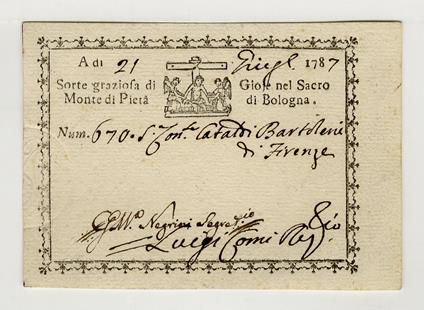 A di 21 Giugl. 1787
Sorte graziosa di Gioje nel Sacro
Monte di Pietà di Bologna.
Num. 670. S. Con.ᵗ Cataldi Bartoleni
di Firenze
Negrini Segret.io
Luigi Comi